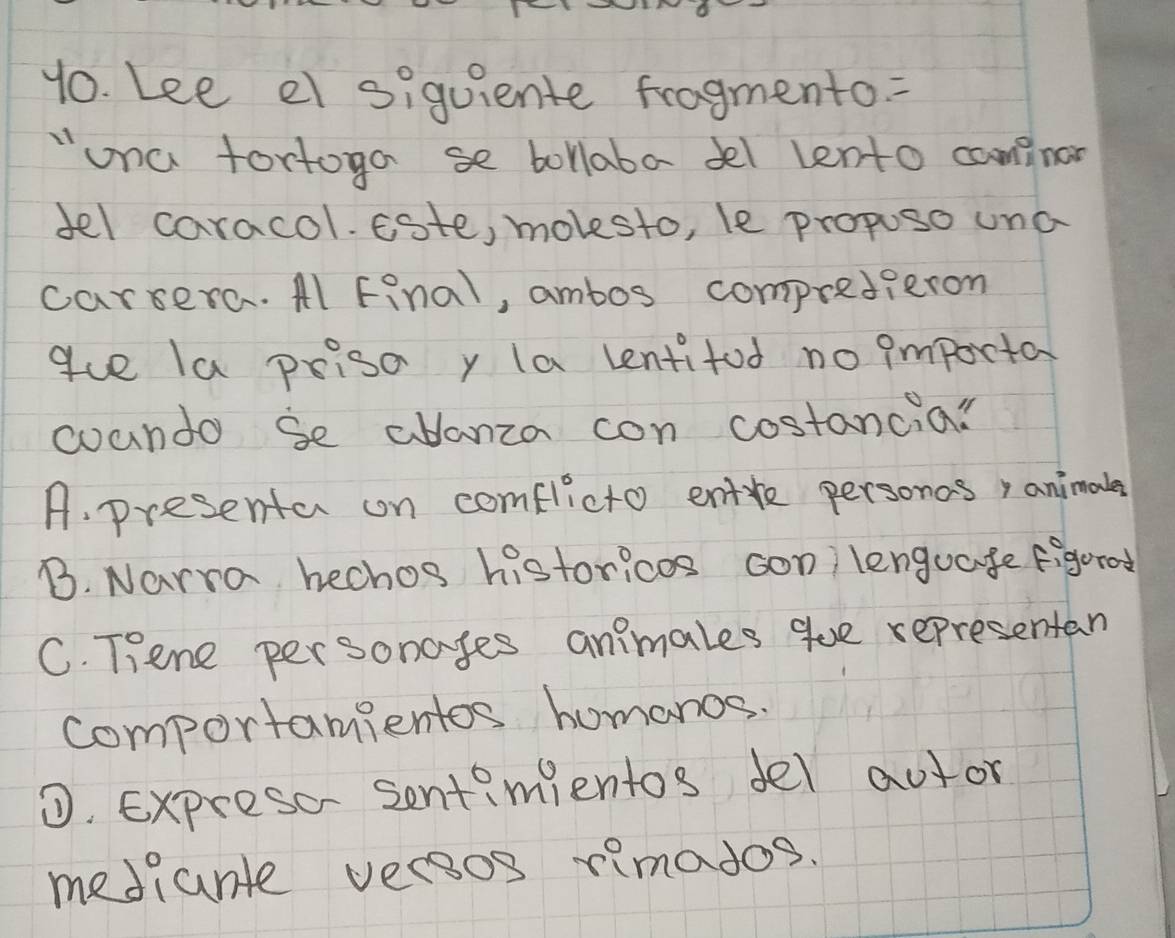 10. Lee el siguiente fragmento:
"una tortoga se bollaba del lento caminar
del caracol. Este, molesto, le propuso una
carrera. Al Final, ambos compredieron
que la prisa y la lentitud no importa
cuando se abanza con costancia"
A. presenta un comflicto entre personas y animales
B. Narra hechos historicos con lenguaje figurad
C. Tiene personajes animales que representan
comportamientos humanos.
D. Expresa sentimientos del autor
mediante versos rimados.